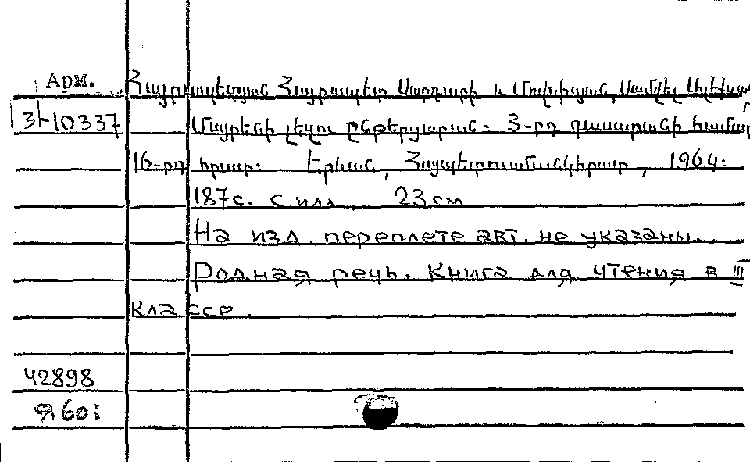 Арм. Հայրապետյան Հայրապետ Սարգսի և Մալխասյան Սամվել
3Ի10337 Մայրենի լեզու ընթերցարան: 3-րդ դասարանի համար
16-րդ հրատ: Երևան, Հայպետուսմանկհրատ, 1964:
187с. с илл 23см
На изд. переплете авт. не указаны.
Родная речь. Книга для чтения в III
классе.
42898
Я60: